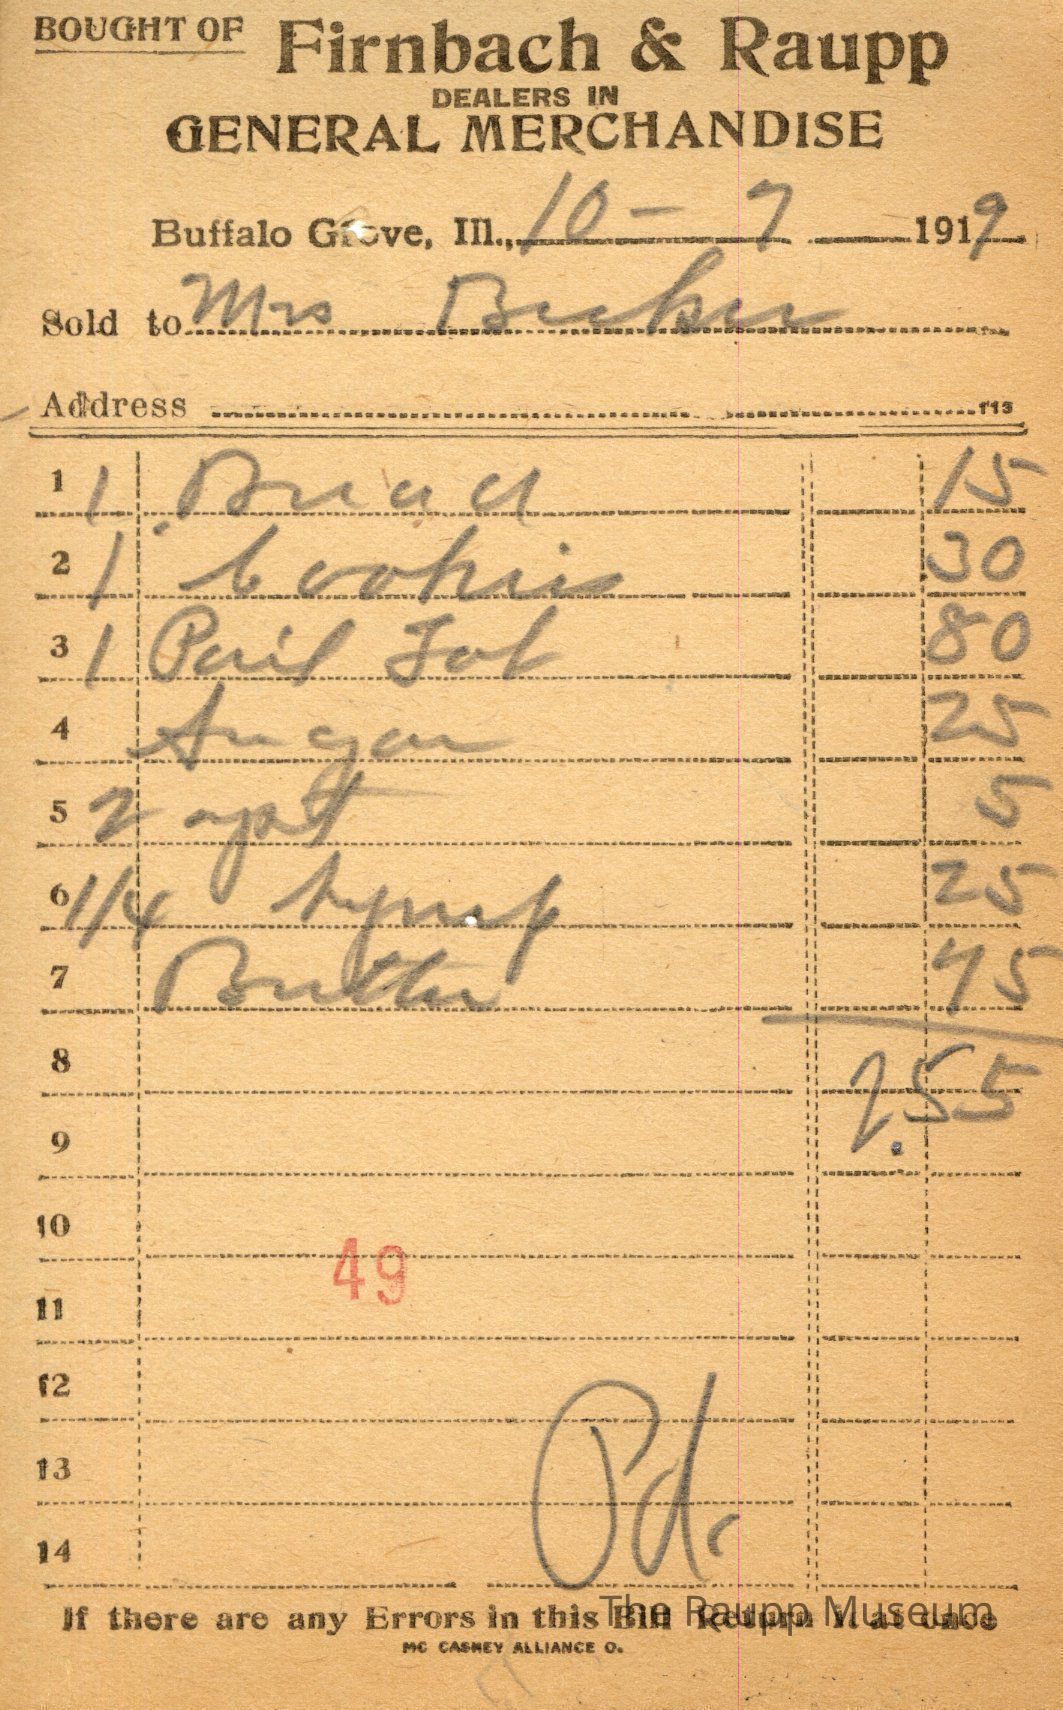 BOUGHT OF Firnbach & Raupp
DEALERS IN
GENERAL MERCHANDISE
Buffalo Grove, Ill., 10 - 7 1919
Sold to Mrs
Address
113
1 1 Bread 15
2 1 Cookies 30
3 1 Pail Tob 80
4 Sugar 25
5 2 yst 5
6 1/4 syrup 25
7 Butter 75
8 2.55
9
10
49
11
12
13 Pd.
14
If there are any Errors in this Bill Return it at once
The Raupp Museum
MC CASKEY ALLIANCE O.